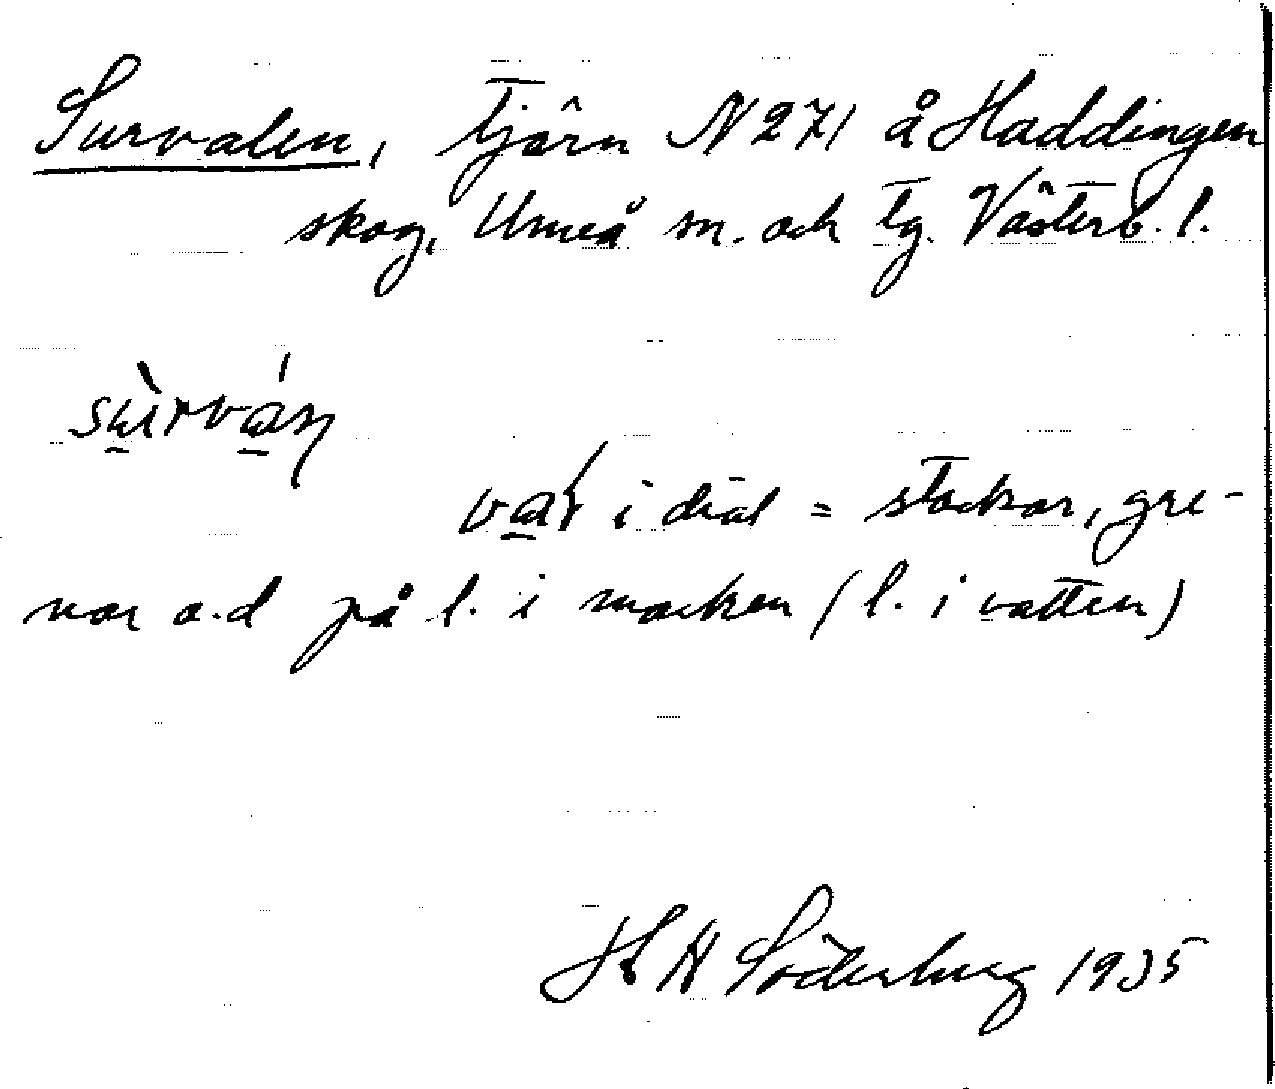 Survalen, tjärn N 271 å Haddingen
skog, Umeå sn. och tg. Västerb. l.
sùrván
var i dial = stockar, gre-
nar o.d på l. i marken (l. i vatten)
H Söderberg 1935